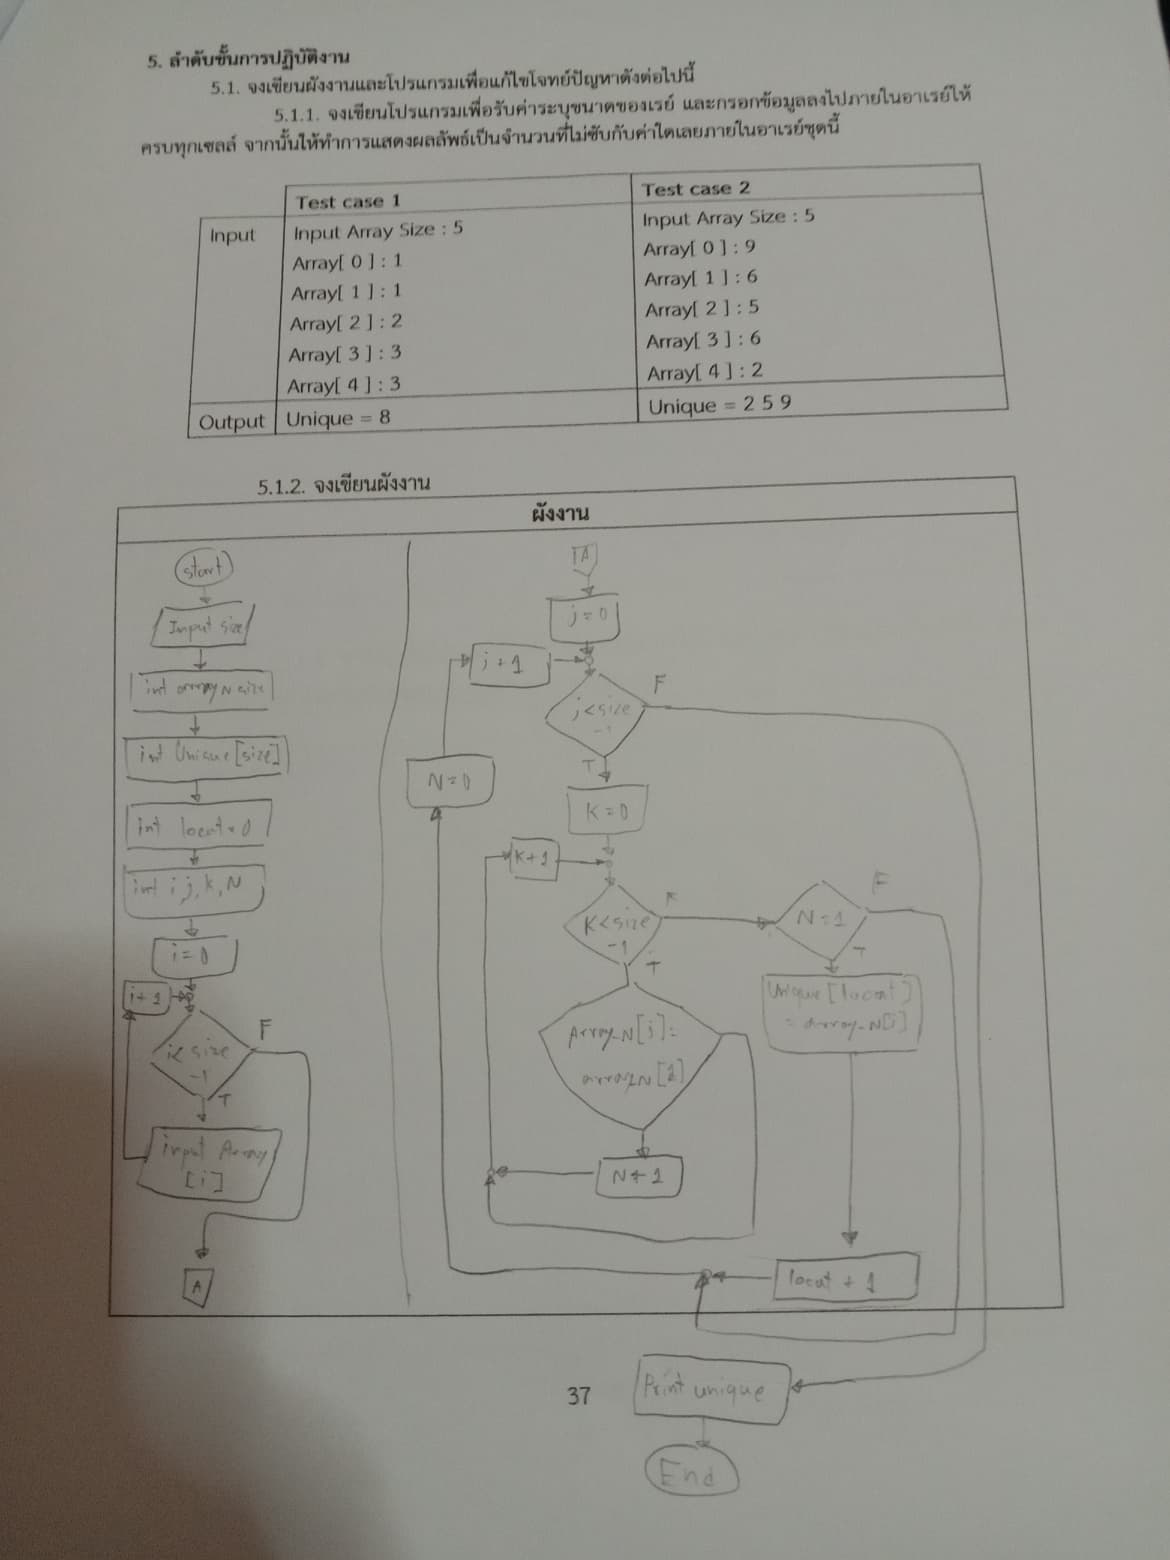 5. ลำดับขั้นการปฏิบัติงาน
5.1. จงเขียนผังงานและโปรแกรมเพื่อแก้ไขโจทย์ปัญหาดังต่อไปนี้
5.1.1. จงเขียนโปรแกรมเพื่อรับค่าระบุขนาดของเรย์ และกรอกข้อมูลลงไปภายในอาเรย์ให้
ครบทุกเซลล์ จากนั้นให้ทำการแสดงผลลัพธ์เป็นจำนวนที่ไม่ซับกับค่าใดเลยภายในอาเรย์ชุดนี้
Test case 1
Test case 2
Input
Input Array Size : 5
Array[ 0 ] : 1
Array[ 1 ] : 1
Array[ 2 ] : 2
Array[ 3 ] : 3
Array[ 4 ] : 3
Input Array Size : 5
Array[ 0 ] : 9
Array[ 1 ] : 6
Array[ 2 ] : 5
Array[ 3 ] : 6
Array[ 4 ] : 2
Output
Unique = 8
Unique = 2 5 9
5.1.2. จงเขียนผังงาน
ผังงาน
start
Input size
int array N size
int Unique[size]
int locat = 0
int i, j, k, N
i = 0
i + 1
i < size
-1
F
T
input Array
[i]
A
A
j = 0
j + 1
j < size
-1
F
T
N = 0
K = 0
K + 1
K < size
-1
F
T
N = 1
F
T
Unique[locat]
= array_N[i]
Array_N[j] =
array_N[2]
N + 1
locat + 1
37
Print unique
End